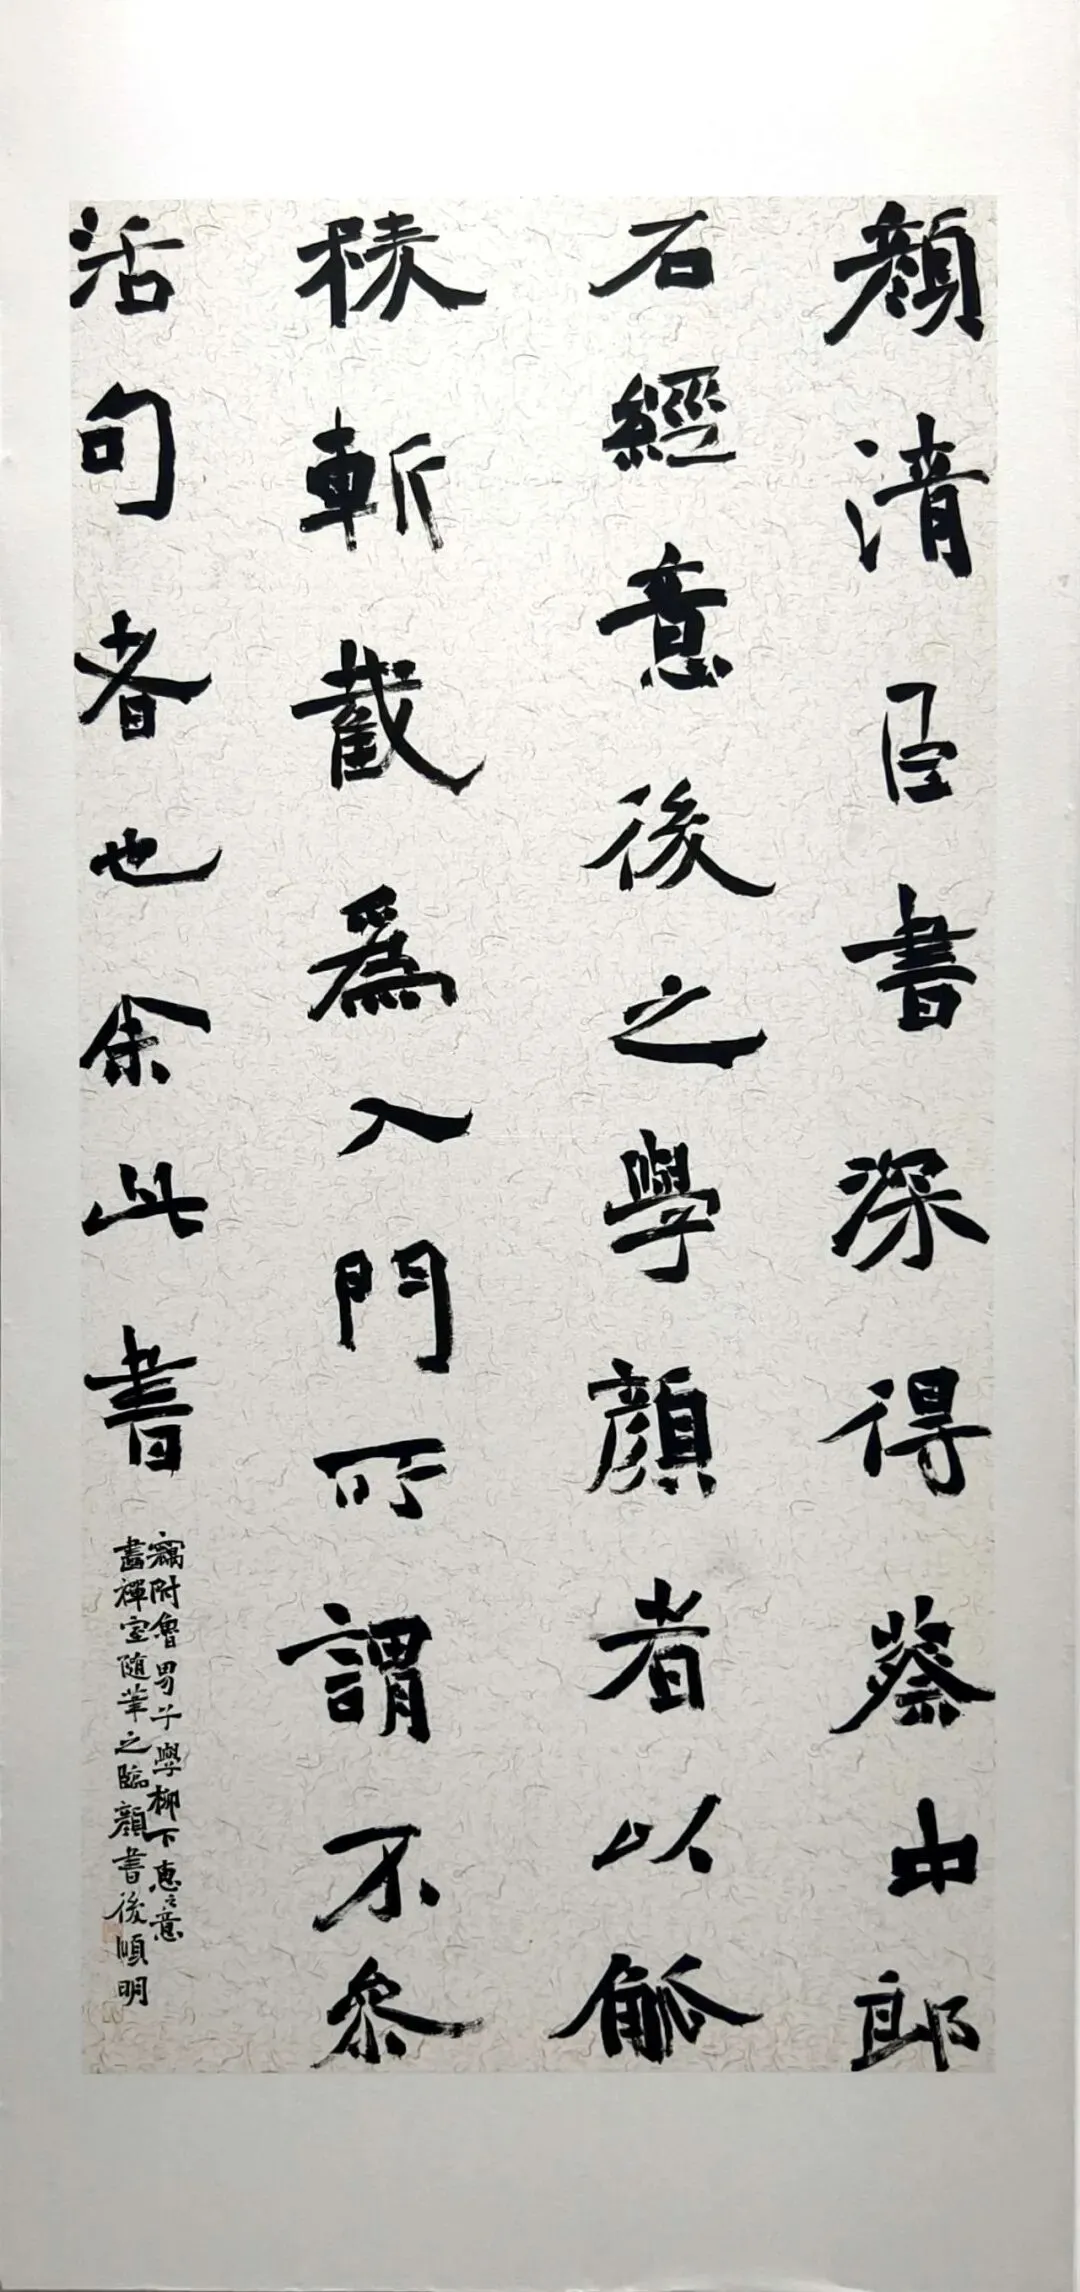 顏清臣書深得蔡中郎
石經意後之學顏者以觚
棱斬截爲入門所謂不參
活句者也余此書
竊附魯男子學柳下惠之意
畫禪室隨筆之臨顏書後順明